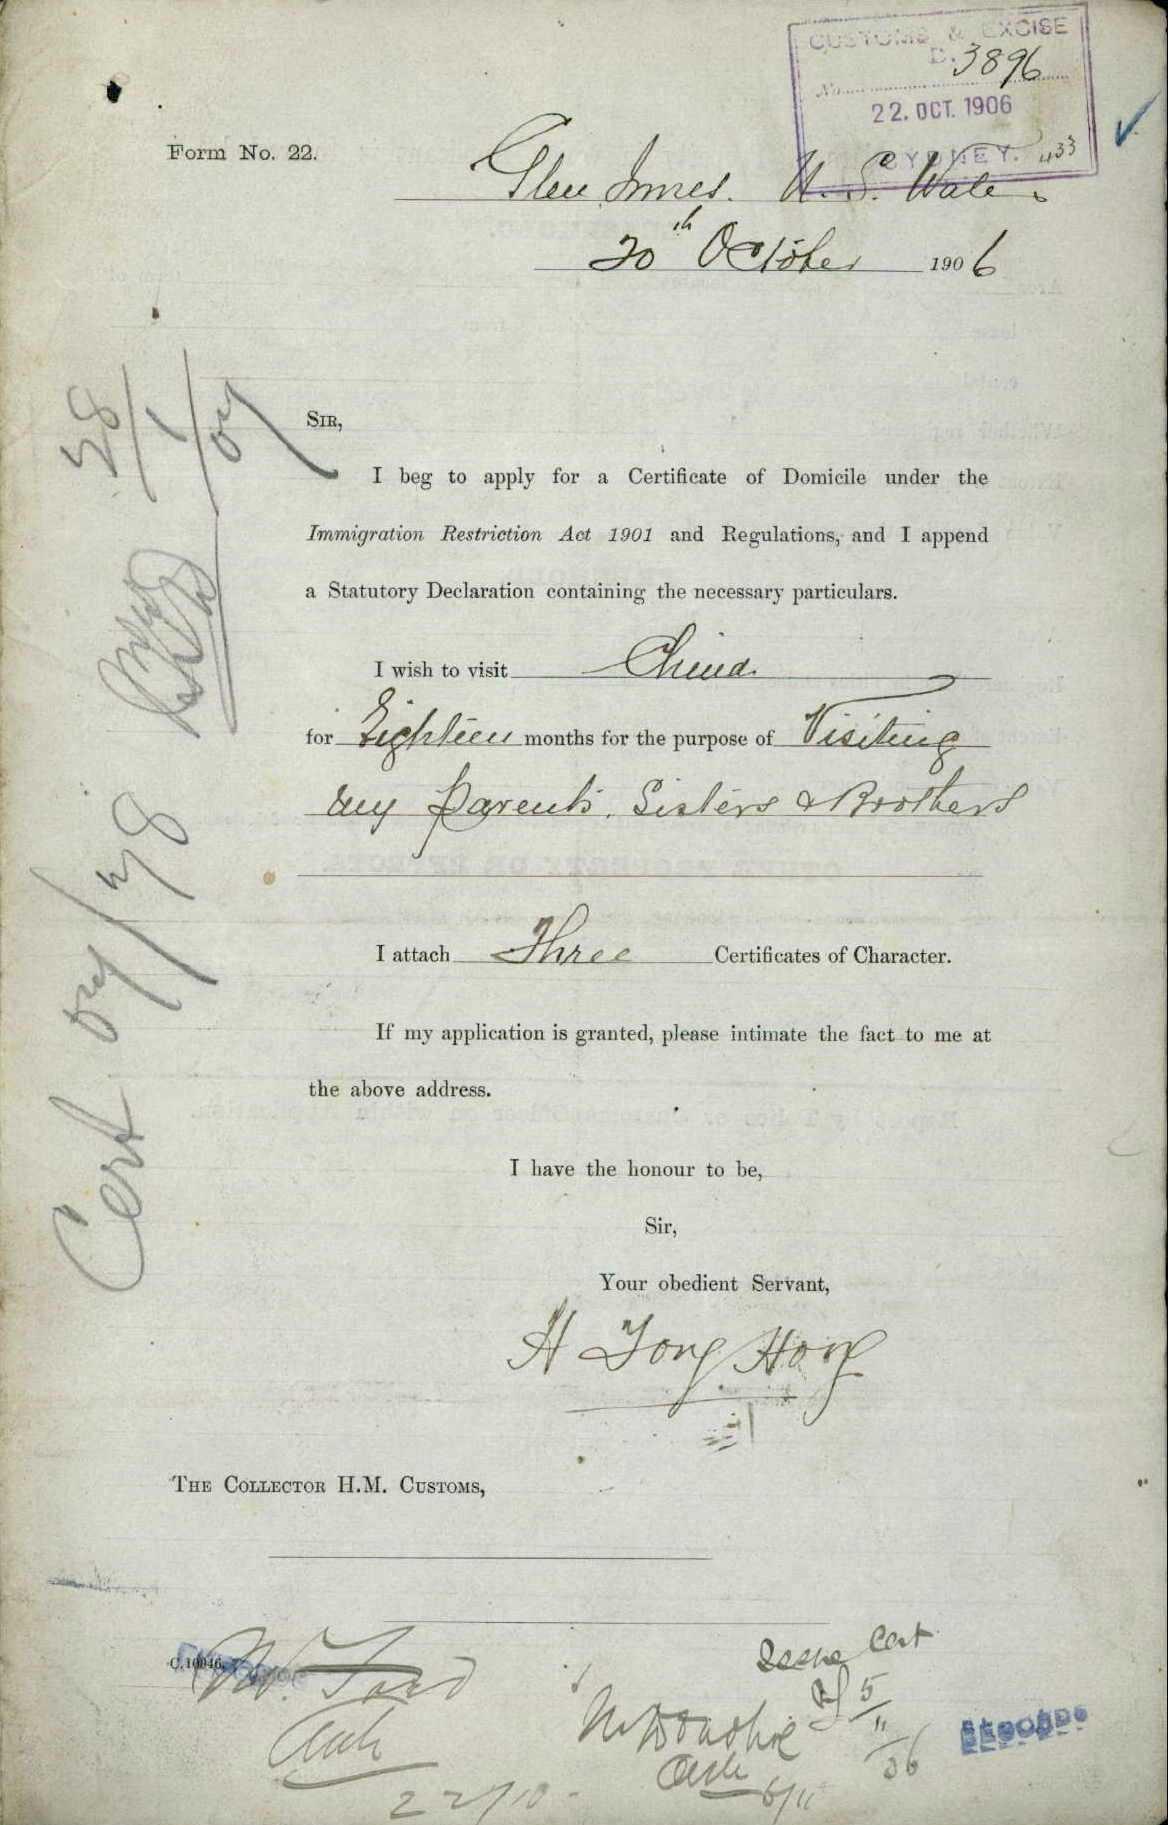 CUSTOMS & EXCISE
D. 3896
No.
22. OCT. 1906
SYDNEY. 433
Form No. 22.
Glen Innes. N. S. Wales
20th October 1906
SIR,
I beg to apply for a Certificate of Domicile under the
Immigration Restriction Act 1901 and Regulations, and I append
a Statutory Declaration containing the necessary particulars.
I wish to visit China
for Eighteen months for the purpose of Visiting
my Parents, Sisters & Brothers
I attach Three Certificates of Character.
If my application is granted, please intimate the fact to me at
the above address.
I have the honour to be,
Sir,
Your obedient Servant,
H Tong Hong
THE COLLECTOR H.M. CUSTOMS,
Cert 07/28
28/1/07
C.10946.
Mr. Ford
22/10
Issue Cert
5/11/06
Mr Donohoe
6/11
RECORDS